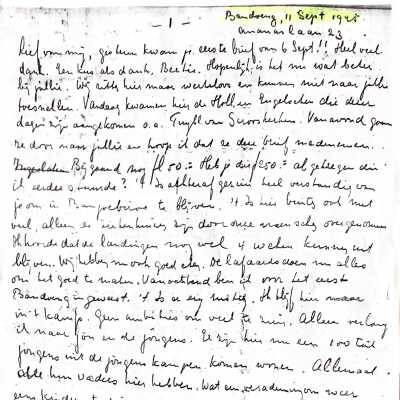 - 1 -
Bandoeng, 11 Sept 1945
Ananaslaan 23
Lief van mij, gisteren kwam je eerste brief van 6 Sept!! Heel veel
dank. Een kus als dank, Beertie. Hopelijk is het nu wat beter
bij jullie. Wij zitten hier maar werkeloos en kunnen niet naar jullie
toesnellen. Vandaag kwamen hier de Holl. en Engelschen die dezer
dagen zijn aangekomen o.a. Tuyll van Serooskerken. Vanavond gaan
ze door naar jullie en hoop ik dat ze deze brief medenemen.
Ingesloten Bijgaand nog fl 50.= Heb je die 250.= al gekregen die
ik eerder stuurde? 't Is achteraf gezien heel verstandig van
je om in te blijven. 't Is hier buiten ook niet
veel, alleen de ziekenhuizen zijn door onze menschen overgenomen
Ik hoorde dat de landingen nog wel 4 weken kunnen uit
blijven. Wij hebben nu ook goed eten. De lafaards doen nu alles
om het goed te maken. Vanochtend ben ik voor het eerst
Bandoeng in geweest. 't Is er erg rustig. Ik blijf hier maar
in 't kamp. Geen ambities om veel te zien. Alleen verlang
ik naar jou en de jongens. Er zijn hier nu een 100 tal
jongens uit de jongens kampen komen wonen. Allemaal
die hun vaders hier hebben. Wat een verademing om weer
eens kinderen te